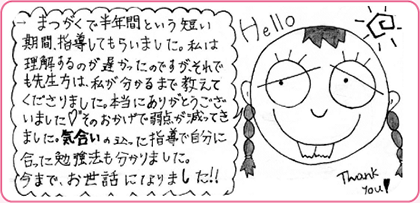 まつがくで半年間という短い
期間、指導してもらいました。私は
理解するのが遅かったのですが、それで
も先生方は、私が分かるまで教えて
くださりました。本当にありがとうござい
ました♡そのおかげで弱点が減ってき
ました。気合いの込った指導で自分に
合った勉強法も分かりました。
今まで、お世話になりました!!
Hello
Thank
you!